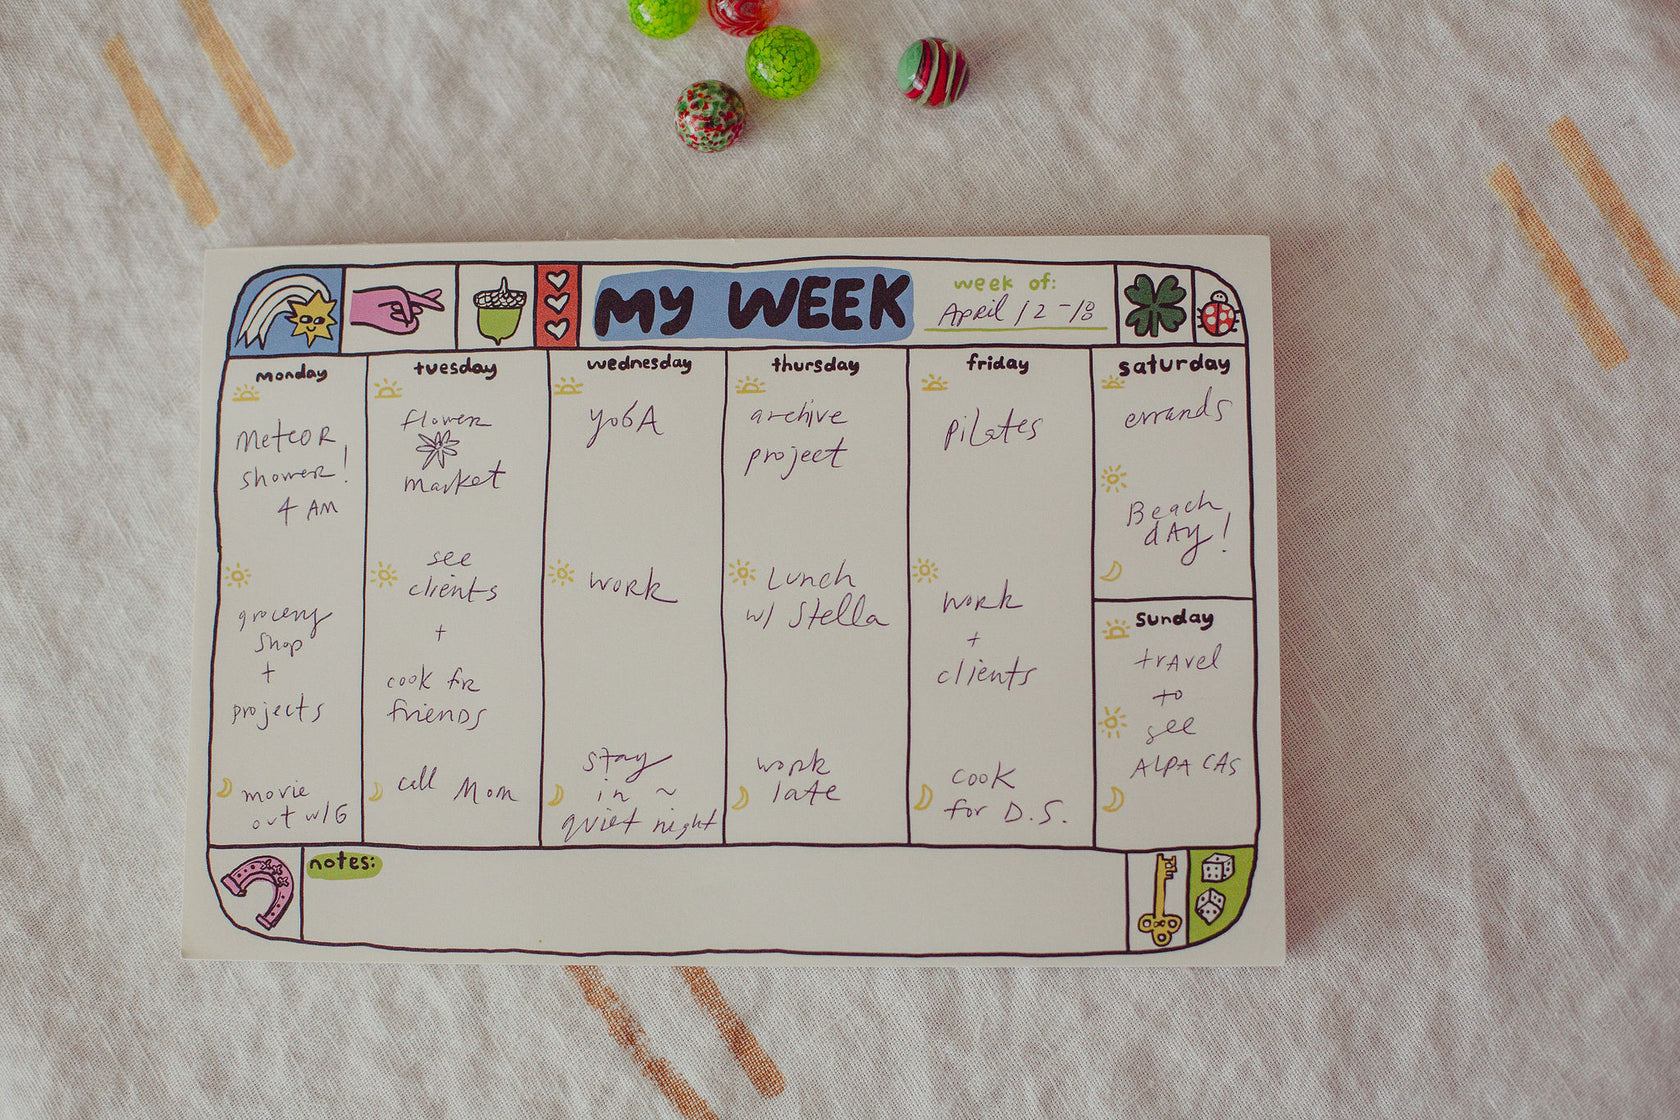 MY WEEK
week of:
April 12-18
monday
Meteor
shower!
4 AM
grocery
shop
+
projects
movie
out w/G
tuesday
flower
market
see
clients
+
cook for
friends
call Mom
wednesday
yoGA
work
stay
in ~
quiet night
thursday
archive
project
Lunch
w/ Stella
work
late
friday
pilates
work
+
clients
cook
for D.S.
saturday
errands
Beach
dAy!
sunday
trAvel
to
see
AlPACAS
notes: